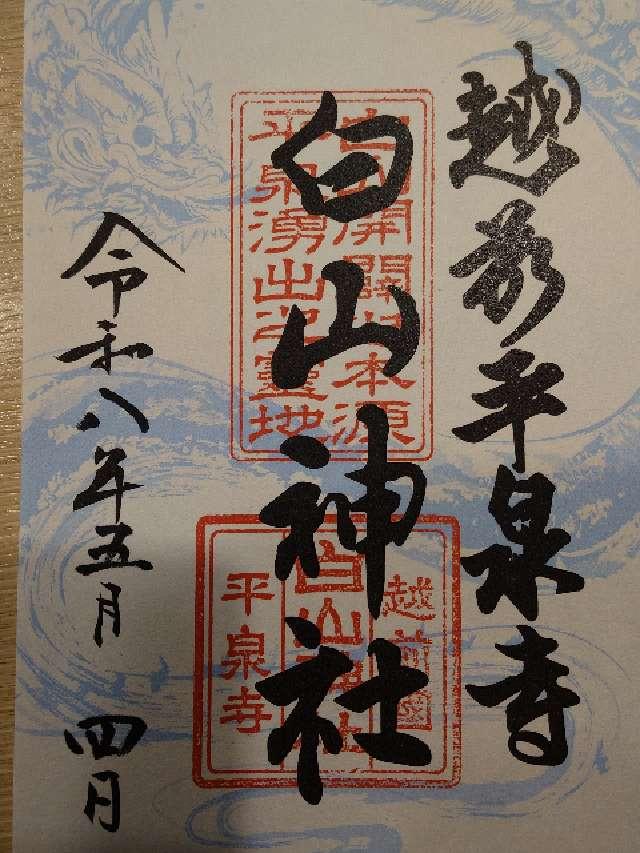 越前平泉寺
白山神社
白山開闢之本源
平泉湧出之靈地
越前國
白山神社
平泉寺
令和八年五月四日